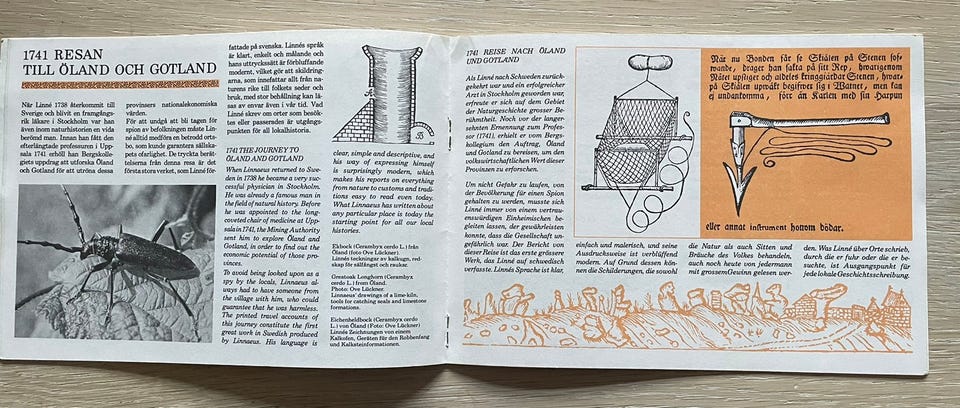 1741 RESAN
TILL ÖLAND OCH GOTLAND
När Linné 1738 återkommit till
Sverige och blivit en framgångs-
rik läkare i Stockholm var han
även inom naturhistorien en vida
berömd man. Innan han fått den
efterlängtade professuren i Upp-
sala 1741 erhöll han Bergskolle-
giets uppdrag att utforska Öland
och Gotland för att utröna dessa
provinsers nationalekonomiska
värden.
För att undgå att bli tagen för
spion av befolkningen måste Lin-
né alltid medföra en betrodd orts-
bo, som kunde garantera sällska-
pets ofarlighet. De tryckta berät-
telserna från denna resa är det
första stora verket, som Linné för-
fattade på svenska. Linnés språk
är klart, enkelt och målande och
hans uttryckssätt är förbluffande
modernt, vilket gör att skildring-
arna, som innefattar allt från na-
turens rike till folkets seder och
bruk, med stor behållning kan lä-
sas av envar även i vår tid. Vad
Linné skrev om orter som besök-
tes eller passerades är utgångs-
punkten för all lokalhistoria.
1741 THE JOURNEY TO
ÖLAND AND GOTLAND
When Linnaeus returned to Swe-
den in 1738 he became a very suc-
cessful physician in Stockholm.
He was already a famous man in
the field of natural history. Before
he was appointed to the long-
coveted chair of medicine at Upp-
sala in 1741, the Mining Authority
sent him to explore Öland and
Gotland, in order to find out the
economic potential of those pro-
vinces.
To avoid being looked upon as a
spy by the locals, Linnaeus al-
ways had to have someone from
the village with him, who could
guarantee that he was harmless.
The printed travel accounts of
this journey constitute the first
great work in Swedish produced
by Linnaeus. His language is
B
clear, simple and descriptive, and
his way of expressing himself
is surprisingly modern, which
makes his reports on everything
from nature to customs and tradi-
tions easy to read even today.
What Linnaeus has written about
any particular place is today the
starting point for all our local
histories.
Ekbock (Cerambyx cerdo L.) från
Öland (foto Ove Lückner).
Linnés teckningar av kalkugn, red-
skap för sälfångst och raukar.
Greatoak Longhorn (Cerambyx
cerdo L.) from Öland.
Photo: Ove Lückner.
Linnaeus' drawings of a lime-kiln,
tools for catching seals and limestone
formations.
Eichenheldbock (Cerambyx cerdo
L.) von Öland (Foto: Ove Lückner)
Linnés Zeichnungen von einem
Kalkofen, Geräten für den Robbenfang
und Kalksteinformationen.
1741 REISE NACH ÖLAND
UND GOTLAND
Als Linné nach Schweden zurück-
gekehrt war und ein erfolgreicher
Arzt in Stockholm geworden war,
erfreute er sich auf dem Gebiet
der Naturgeschichte grosser Be-
rühmtheit. Noch vor der langer-
sehnten Ernennung zum Profes-
sor (1741), erhielt er vom Bergs-
kollegium den Auftrag, Öland
und Gotland zu bereisen, um den
volkswirtschaftlichen Wert dieser
Provinzen zu erforschen.
Um nicht Gefahr zu laufen, von
der Bevölkerung für einen Spion
gehalten zu werden, musste sich
Linné immer von einem vertrau-
enswürdigen Einheimischen be-
gleiten lassen, der gewährleisten
konnte, dass die Gesellschaft un-
gefährlich war. Der Bericht von
dieser Reise ist das erste grössere
Werk, das Linné auf schwedisch
verfasste. Linnés Sprache ist klar,
einfach und malerisch, und seine
Ausdrucksweise ist verblüffend
modern. Auf Grund dessen kön-
nen die Schilderungen, die sowohl
die Natur als auch Sitten und
Bräuche des Volkes behandeln,
auch noch heute von jedermann
mit grossem Gewinn gelesen wer-
den. Was Linné über Orte schrieb,
durch die er fuhr oder die er be-
suchte, ist Ausgangspunkt für
jede Geschichtsschreibung.
När nu Bonden får se Skälen på Stenen sof-
wande, drager han sakta på sitt Rep, hwarigenom
Nätet upstiger och aldeles kringgiärdar Stenen, hwar-
på Skälen upwäkt begifwer sig i Watnet, men kan
ej undankomma, förr än Karlen med sin Harpun
eller annat instrument honom dödar.